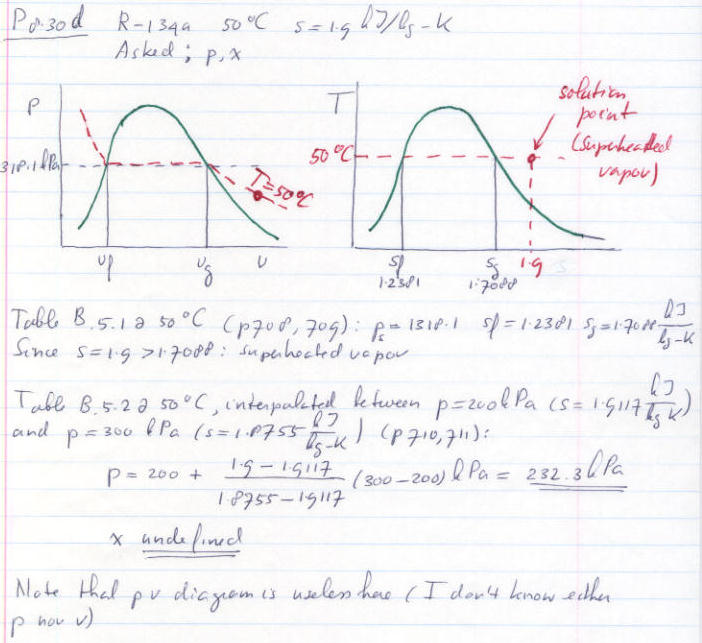 P8.30d R-134a 50°C s=1.9 kJ/kg-K
Asked: p, x
p
318.1 kPa
T=50°C
vf
vg
v
T
50°C
solution
point
(superheated
vapor)
sf
1.2381
sg
1.7088
1.9
s
Table B.5.1 @ 50°C (p708, 709): ps = 1318.1 sf = 1.2381 sg = 1.7088 kJ/kg-K
Since s=1.9 > 1.7088: superheated vapor
Table B.5.2 @ 50°C, interpolated between p=200kPa (s = 1.9117 kJ/kg K)
and p = 300 kPa (s = 1.8755 kJ/kg-K) (p710, 711):
p = 200 + (1.9 - 1.9117)/(1.8755 - 1.9117) (300-200) kPa = 232.3 kPa
x undefined
Note that pv diagram is useless here (I don't know either
p nor v)